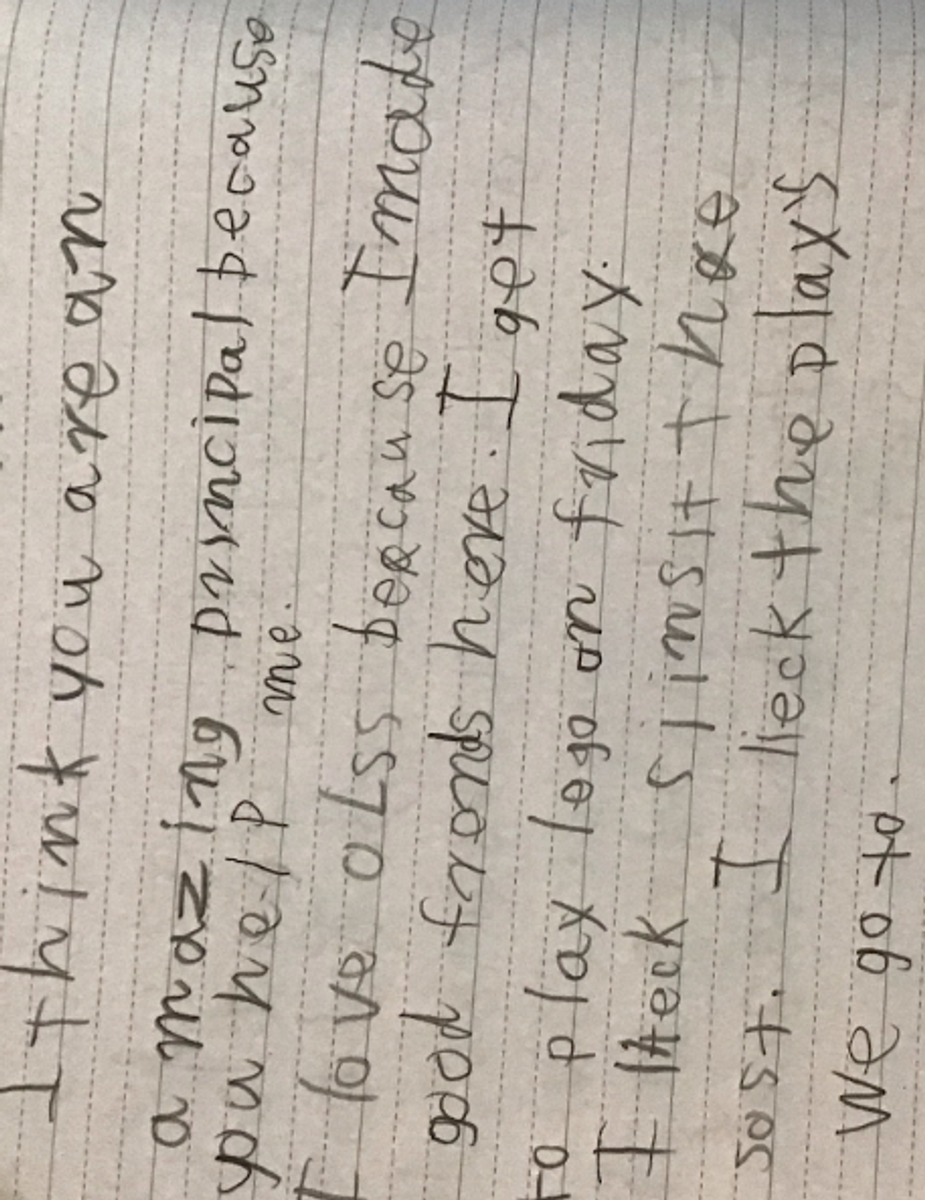 I think you are an
amazing principal because
you help me.
I love OLSS because I made
good frends here. I get
to play lego on friday.
I lieck sjinsit thee
sost. I lieck the play's
We go to.